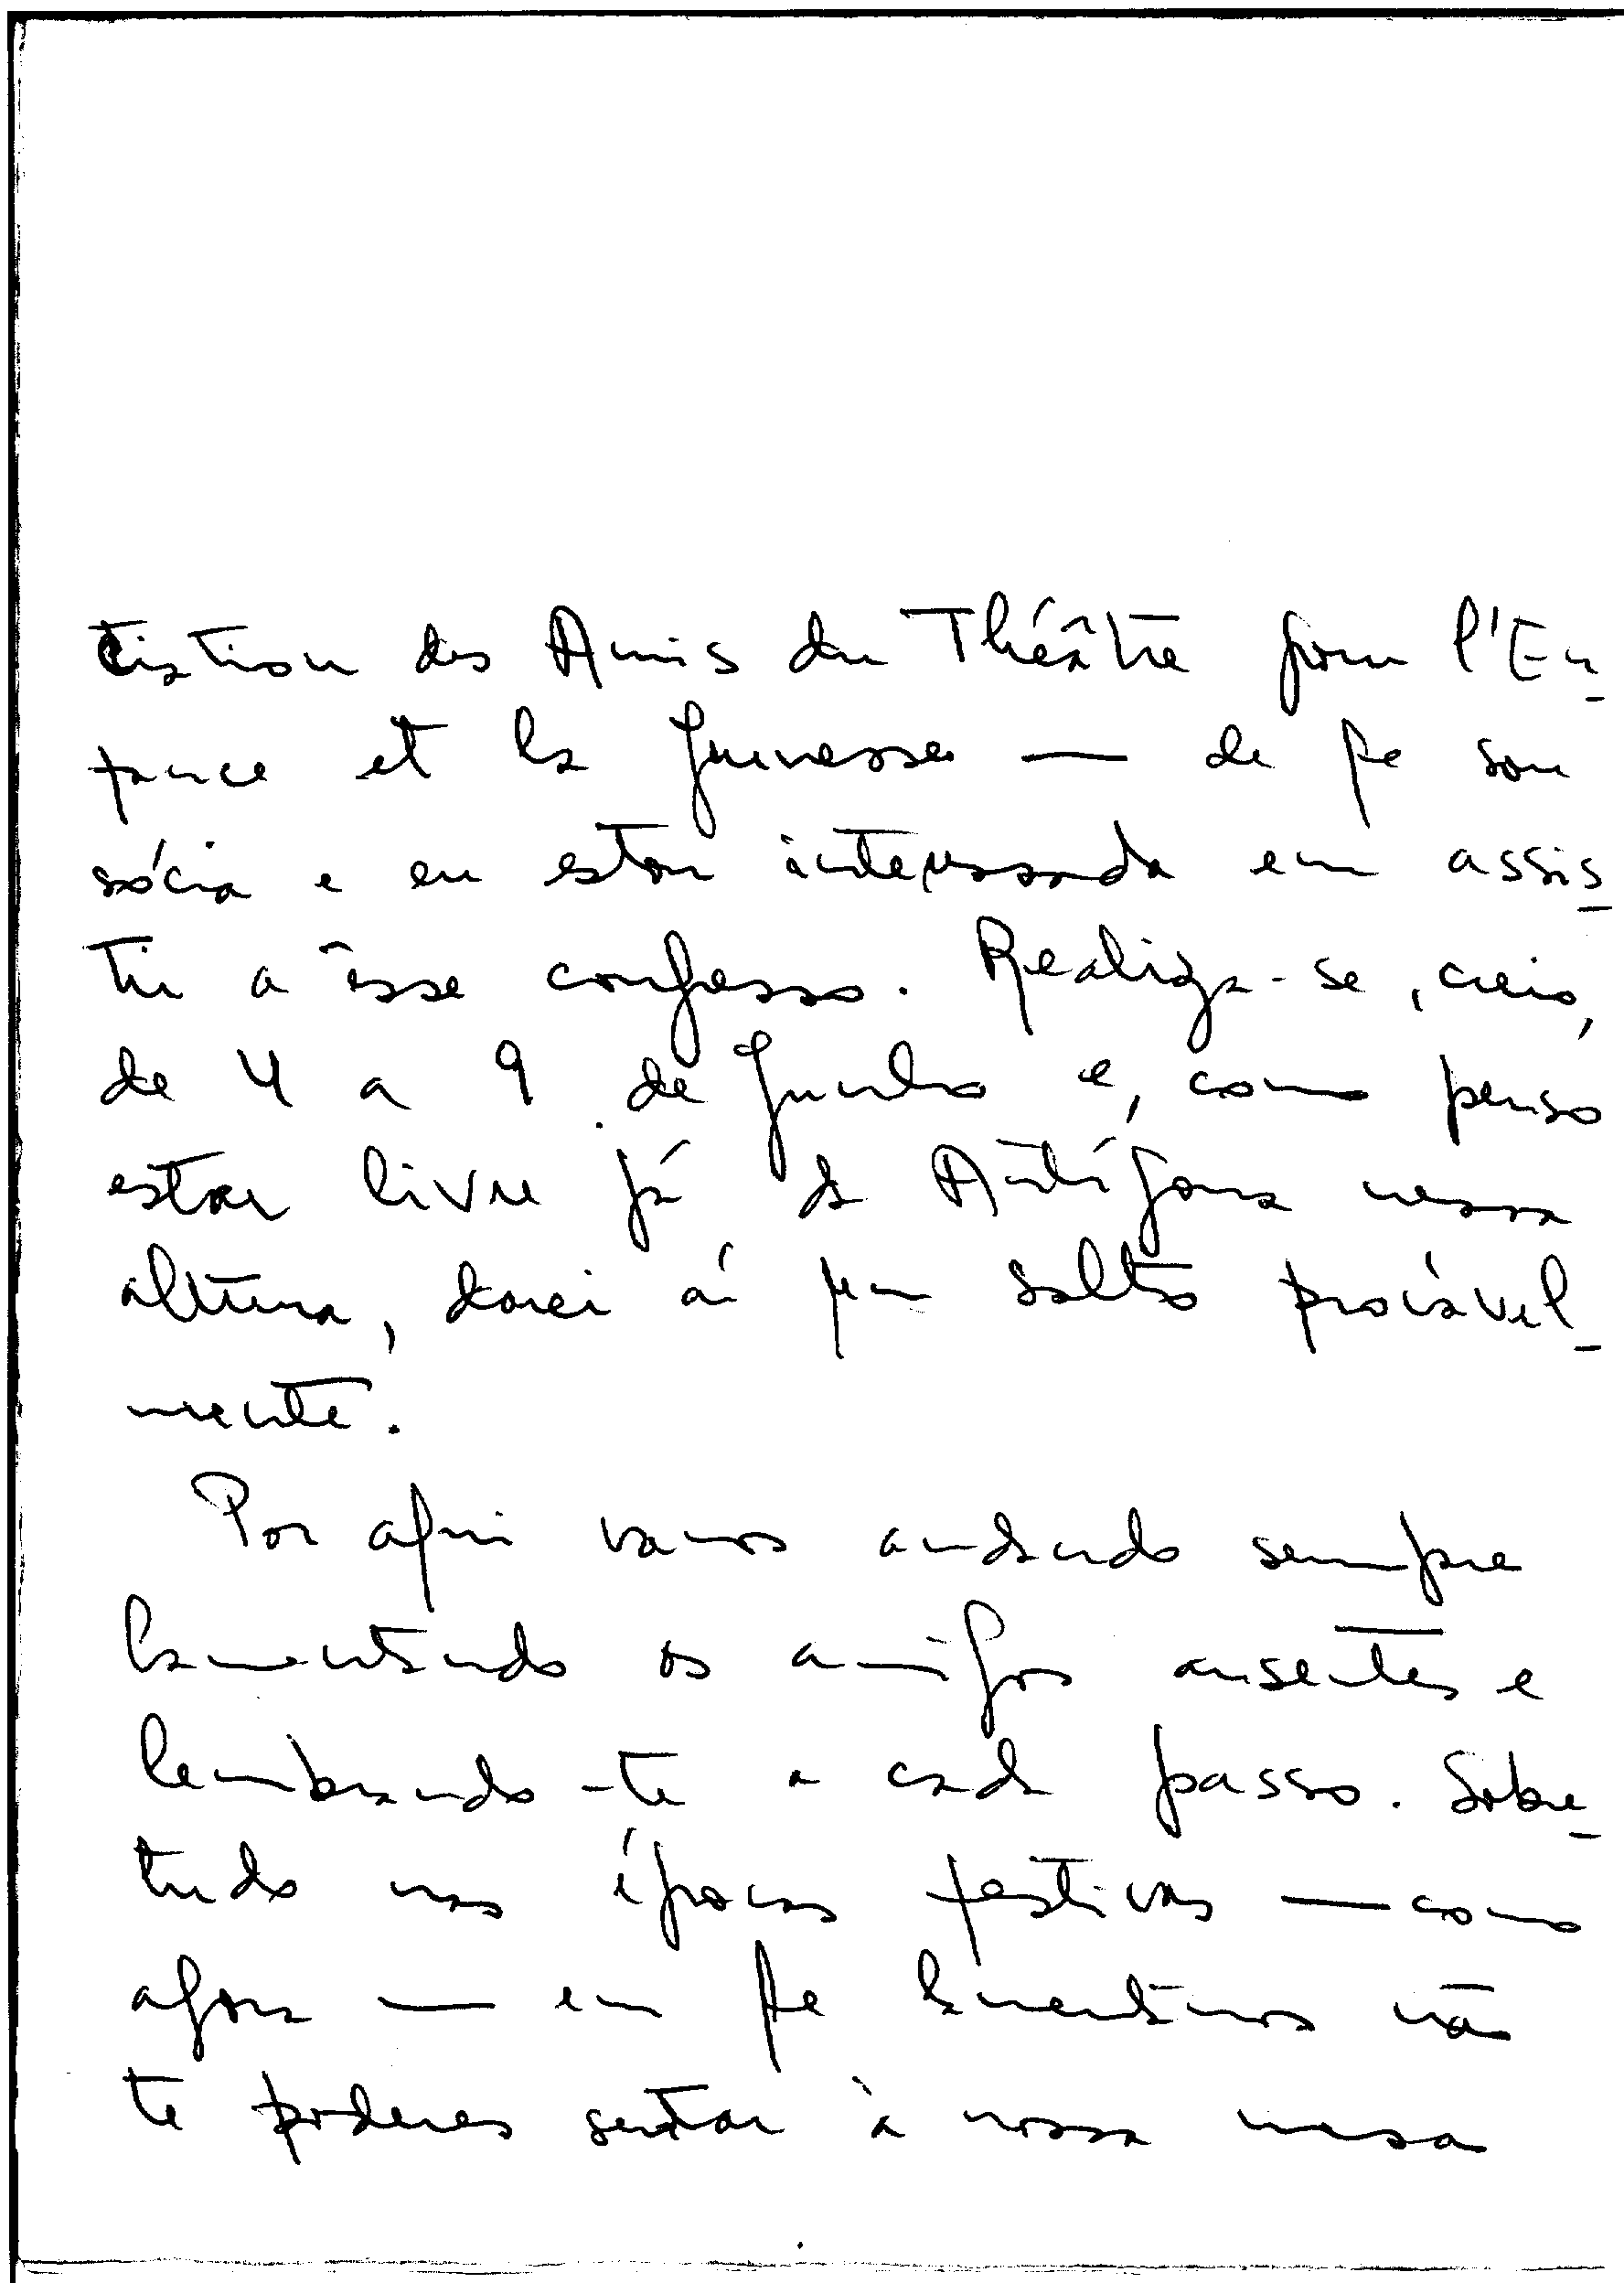 ciation des Amis du Théâtre pour l'En-
fance et la Jeunesse — de que sou
sócia e eu estou interessada em assis-
tir a êsse congresso. Realiza-se, creio,
de 4 a 9 de Junho e, como penso
estar livre já da Antígona nessa
altura, darei aí um salto provável-
mente.
Por aqui vamos andando sempre
lamentando os amigos ausentes e
lembrando-te a cada passo. Sobre-
tudo nas épocas festivas — como
agora — em que lamentamos não
te poderes sentar à nossa mesa